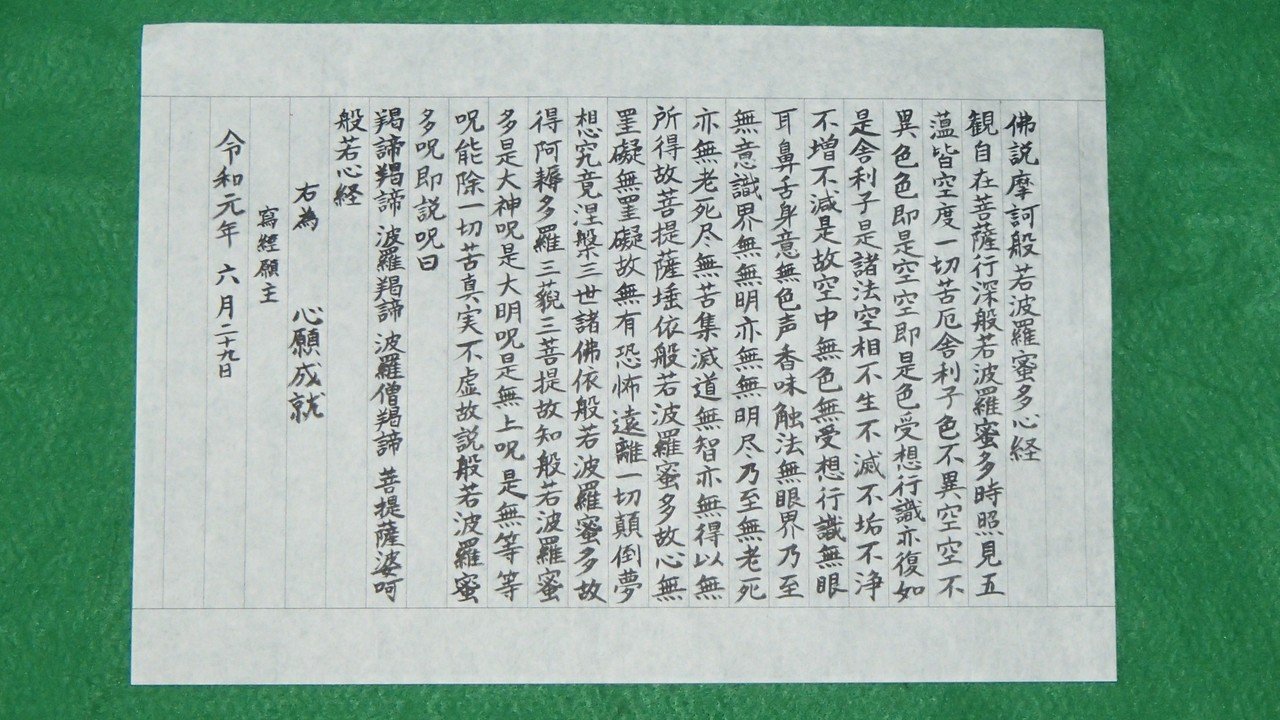 佛説摩訶般若波羅蜜多心経
観自在菩薩行深般若波羅蜜多時照見五
薀皆空度一切苦厄舎利子色不異空空不
異色色即是空空即是色受想行識亦復如
是舎利子是諸法空相不生不滅不垢不浄
不増不減是故空中無色無受想行識無眼
耳鼻舌身意無色声香味触法無眼界乃至
無意識界無無明亦無無明尽乃至無老死
亦無老死尽無苦集滅道無智亦無得以無
所得故菩提薩埵依般若波羅蜜多故心無
罣礙無罣礙故無有恐怖遠離一切顛倒夢
想究竟涅槃三世諸佛依般若波羅蜜多故
得阿耨多羅三藐三菩提故知般若波羅蜜
多是大神呪是大明呪是無上呪是無等等
呪能除一切苦真実不虚故説般若波羅蜜
多呪即説呪曰
羯諦羯諦 波羅羯諦 波羅僧羯諦 菩提薩婆呵
般若心経
右為 心願成就
寫經願主
令和元年 六月二十九日